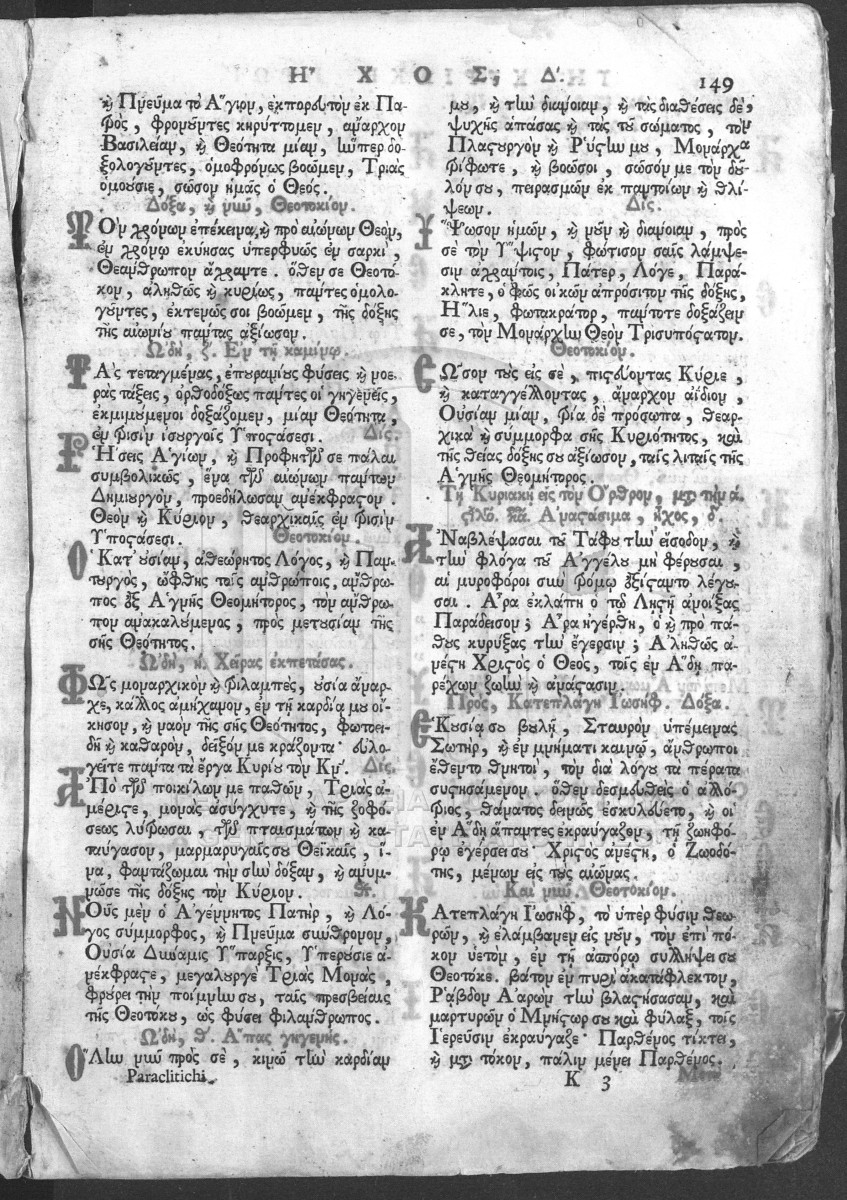 Η᾽ Χ Ο Σ, Δ´.
149
ϗ Πνεῦμα τὸ Ἅγιον, ἐκπορευτὸν ἐκ Πα-
τρὸς, φρονοῦντες κηρύττομεν, ἄναρχον
Βασιλείαν, ϗ Θεότητα μίαν, ἥνπερ δο-
ξολογοῦντες, ὁμοφρόνως βοῶμεν, Τριὰς
ὁμούσιε, σῶσον ἡμᾶς ὁ Θεός.
Δόξα, ϗ νῦν, Θεοτοκίον.
Τὸν χρόνων ἐπέκεινα, ϗ πρὸ αἰώνων Θεὸν,
ἐν χρόνῳ ἐκύησας ὑπερφυῶς ἐν σαρκὶ,
Θεάνθρωπον ἄχραντε. ὅθεν σε Θεοτό-
κον, ἀληθῶς ϗ κυρίως, πάντες ὁμολο-
γοῦντες, ἐκτενῶς σοι βοῶμεν, τῆς δόξης
τῆς αἰωνίου πάντας ἀξίωσον.
ᾨδὴ, ζ. Ἐν τῇ καμίνῳ.
Τὰς τεταγμένας, ἐπουρανίους φύσεις ϗ νοε-
ρὰς τάξεις, ὀρθοδόξως πάντες οἱ γηγενεῖς,
ἐκμιμούμενοι δοξάζομεν, μίαν Θεότητα,
ἐν τρισὶν ἰσουργοῖς Ὑποστάσεσι. Δίς.
Ῥήσεις Ἁγίων, ϗ Προφητῶν σε πάλαι
συμβολικῶς, ἕνα τῶν αἰώνων πάντων
Δημιουργὸν, προεδήλωσαν ἀνέκφραστον.
Θεὸν ϗ Κύριον, θεαρχικαῖς ἐν τρισὶν
Ὑποστάσεσι. Θεοτοκίον.
Ὁ Κατ᾽ οὐσίαν, ἀθεώρητος Λόγος, ϗ Παν-
τουργὸς, ὤφθης τοῖς ἀνθρώποις, ἄνθρω-
πος ἐξ Ἁγνῆς Θεομήτορος, τὸν ἄνθρω-
πον ἀνακαλούμενος, πρὸς μετουσίαν τῆς
σῆς Θεότητος.
ᾨδὴ, η. Χεῖρας ἐκπετάσας.
Φῶς μοναρχικὸν ϗ τριλαμπὲς, οὐσία ἄναρ-
χε, κάλλος ἀμήχανον, ἐν τῇ καρδίᾳ μου οἴ-
κησον, ϗ ναὸν τῆς σῆς Θεότητος, φωτοει-
δῆ ϗ καθαρὸν, δεῖξόν με κράζοντα· εὐλο-
γεῖτε πάντα τὰ ἔργα Κυρίου τὸν Κν´. Δίς.
Ἀπὸ τῶν ποικίλων με παθῶν, Τριὰς ἀ-
μέριστε, μονὰς ἀσύγχυτε, ϗ τῆς ζοφώ-
σεως λύτρωσαι, τῶν πταισμάτων ϗ κα-
ταύγασον, μαρμαρυγαῖς σου Θεϊκαῖς, ἵ-
να, φαντάζωμαι τὴν σὴν δόξαν, ϗ ἀνυμ-
νῶ σε τῆς δόξης τὸν Κύριον. Θτ.
Νοῦς μὲν ὁ Ἀγέννητος Πατὴρ, ϗ Λό-
γος σύμμορφος, ϗ Πνεῦμα σύνθρονον,
Οὐσία Δύναμις Ὕπαρξις, Ὑπερούσιε ἀ-
νέκφραστε, μεγαλουργὲ Τριὰς Μονὰς,
φρούρει τὴν ποίμνην σου, ταῖς πρεσβείαις
τῆς Θεοτόκου, ὡς φύσει φιλάνθρωπος.
ᾨδὴ, θ. Ἅπας γηγενής.
Ὅλην νῦν πρὸς σὲ, κινῶ τὴν καρδίαν
Paraclitichi
μου, ϗ τὴν διάνοιαν, ϗ τὰς διαθέσεις δὲ,
ψυχῆς ἁπάσας ϗ τὰς τοῦ σώματος, τὸν
Πλαστουργὸν ϗ Ῥύστην μου, Μονάρχα
Τρίφωτε, ϗ βοῶ σοι, σῶσόν με τὸν δοῦ-
λόν σου, πειρασμῶν ἐκ παντοίων ϗ θλί-
ψεων. Δίς.
Ὕψωσον ἡμῶν, ϗ νοῦν ϗ διάνοιαν, πρὸς
σὲ τὸν Ὕψιστον, φώτισον σαῖς λάμψε-
σιν ἀχράντοις, Πάτερ, Λόγε, Παρά-
κλητε, ὁ φῶς οἰκῶν ἀπρόσιτον τῆς δόξης,
Ἥλιε, φωτοκράτορ, πάντοτε δοξάζειν
σε, τὸν Μονάρχην Θεὸν Τρισυπόστατον.
Θεοτοκίον.
Σῶσον τοὺς εἰς σὲ, πιστεύοντας Κύριε,
ϗ καταγγέλλοντας, ἄναρχον ἀΐδιον,
Οὐσίαν μίαν, τρία δὲ πρόσωπα, θεαρ-
χικὰ ϗ σύμμορφα σῆς Κυριότητος, καὶ
τῆς θείας δόξης σου ἀξίωσον, ταῖς λιταῖς τῆς
Ἁγνῆς Θεομήτορος.
Τῇ Κυριακῇ εἰς τὸν Ὄρθρον, μτ τὴν ά.
στιχολ. Κα. Ἀναστάσιμα, ἦχος, δ.
Ἀναβλέψασαι τοῦ Τάφου τὴν εἴσοδον, ϗ
τὴν φλόγα τοῦ Ἀγγέλου μὴ φέρουσαι,
αἱ μυροφόροι σὺν τρόμῳ ἐξίσταντο λέγου-
σαι. Ἆρα ἐκλάπη ὁ τῷ Λῃστῇ ἀνοίξας
Παράδεισον; Ἆρα ἠγέρθη, ὁ ϗ πρὸ πά-
θους κηρύξας τὴν ἔγερσιν; Ἀληθῶς ἀ-
νέστη Χριστὸς ὁ Θεὸς, τοῖς ἐν Ἅδῃ πα-
ρέχων ζωὴν ϗ ἀνάστασιν.
Πρὸς, Κατεπλάγη Ἰωσήφ. Δόξα.
Ἑκουσίᾳ σου βουλῇ, Σταυρὸν ὑπέμεινας
Σωτὴρ, ϗ ἐν μνήματι καινῷ, ἄνθρωποι
ἔθεντο θνητοὶ, τὸν διὰ λόγου τὰ πέρατα
συστησάμενον. ὅθεν δεσμευθεὶς ὁ ἀλλό-
τριος, θάνατος δεινῶς ἐσκυλεύετο, ϗ οἱ
ἐν Ἅδῃ ἅπαντες ἐκραύγαζον, τῇ ζωηφό-
ρῳ ἐγέρσει σου· Χριστὸς ἀνέστη, ὁ Ζωοδό-
της, μένων εἰς τοὺς αἰῶνας.
Καὶ νῦν, Θεοτοκίον.
Κατεπλάγη Ἰωσὴφ, τὸ ὑπὲρ φύσιν θεω-
ρῶν, ϗ ἐλάμβανεν εἰς νοῦν, τὸν ἐπὶ πό-
κον ὑετὸν, ἐν τῇ ἀσπόρῳ συλλήψει σου
Θεοτόκε. βάτον ἐν πυρὶ ἀκατάφλεκτον,
Ῥάβδον Ἀαρὼν τὴν βλαστήσασαν, καὶ
μαρτυρῶν ὁ Μνήστωρ σου καὶ φύλαξ, τοῖς
Ἱερεῦσιν ἐκραύγαζε· Παρθένος τίκτει,
ϗ μτ τόκον, πάλιν μένει Παρθένος.
K 3